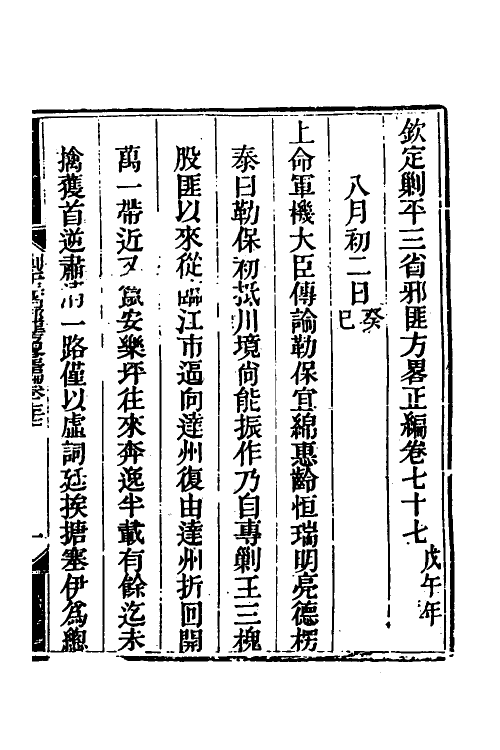 欽定剿平三省邪匪方畧正編卷七十七戊午年
八月初二日癸巳
上命軍機大臣傳諭勒保宜綿惠齡恒瑞明亮德楞
泰曰勒保初抵川境尚能振作乃自專剿王三槐
股匪以來從臨江市逼向達州復由達州折回開
萬一帶近又竄安樂坪往來奔逸半載有餘迄未
擒獲首逆肅清一路僅以虛詞延挨搪塞伊為總